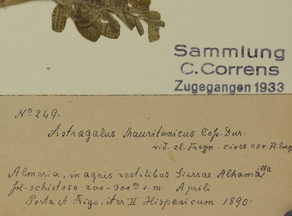 Sammlung
C. Correns
Zugegangen 1933
No 249.
Astragalus Mauritanicus Cofs. Dur.
vid. cl. Freyn.
Almeria, in agris sterilibus Sierrae Alhamilla
sol. schistoso 200-300 m s. m. Aprili
Porta & Rigo, iter II Hispanicum 1890.